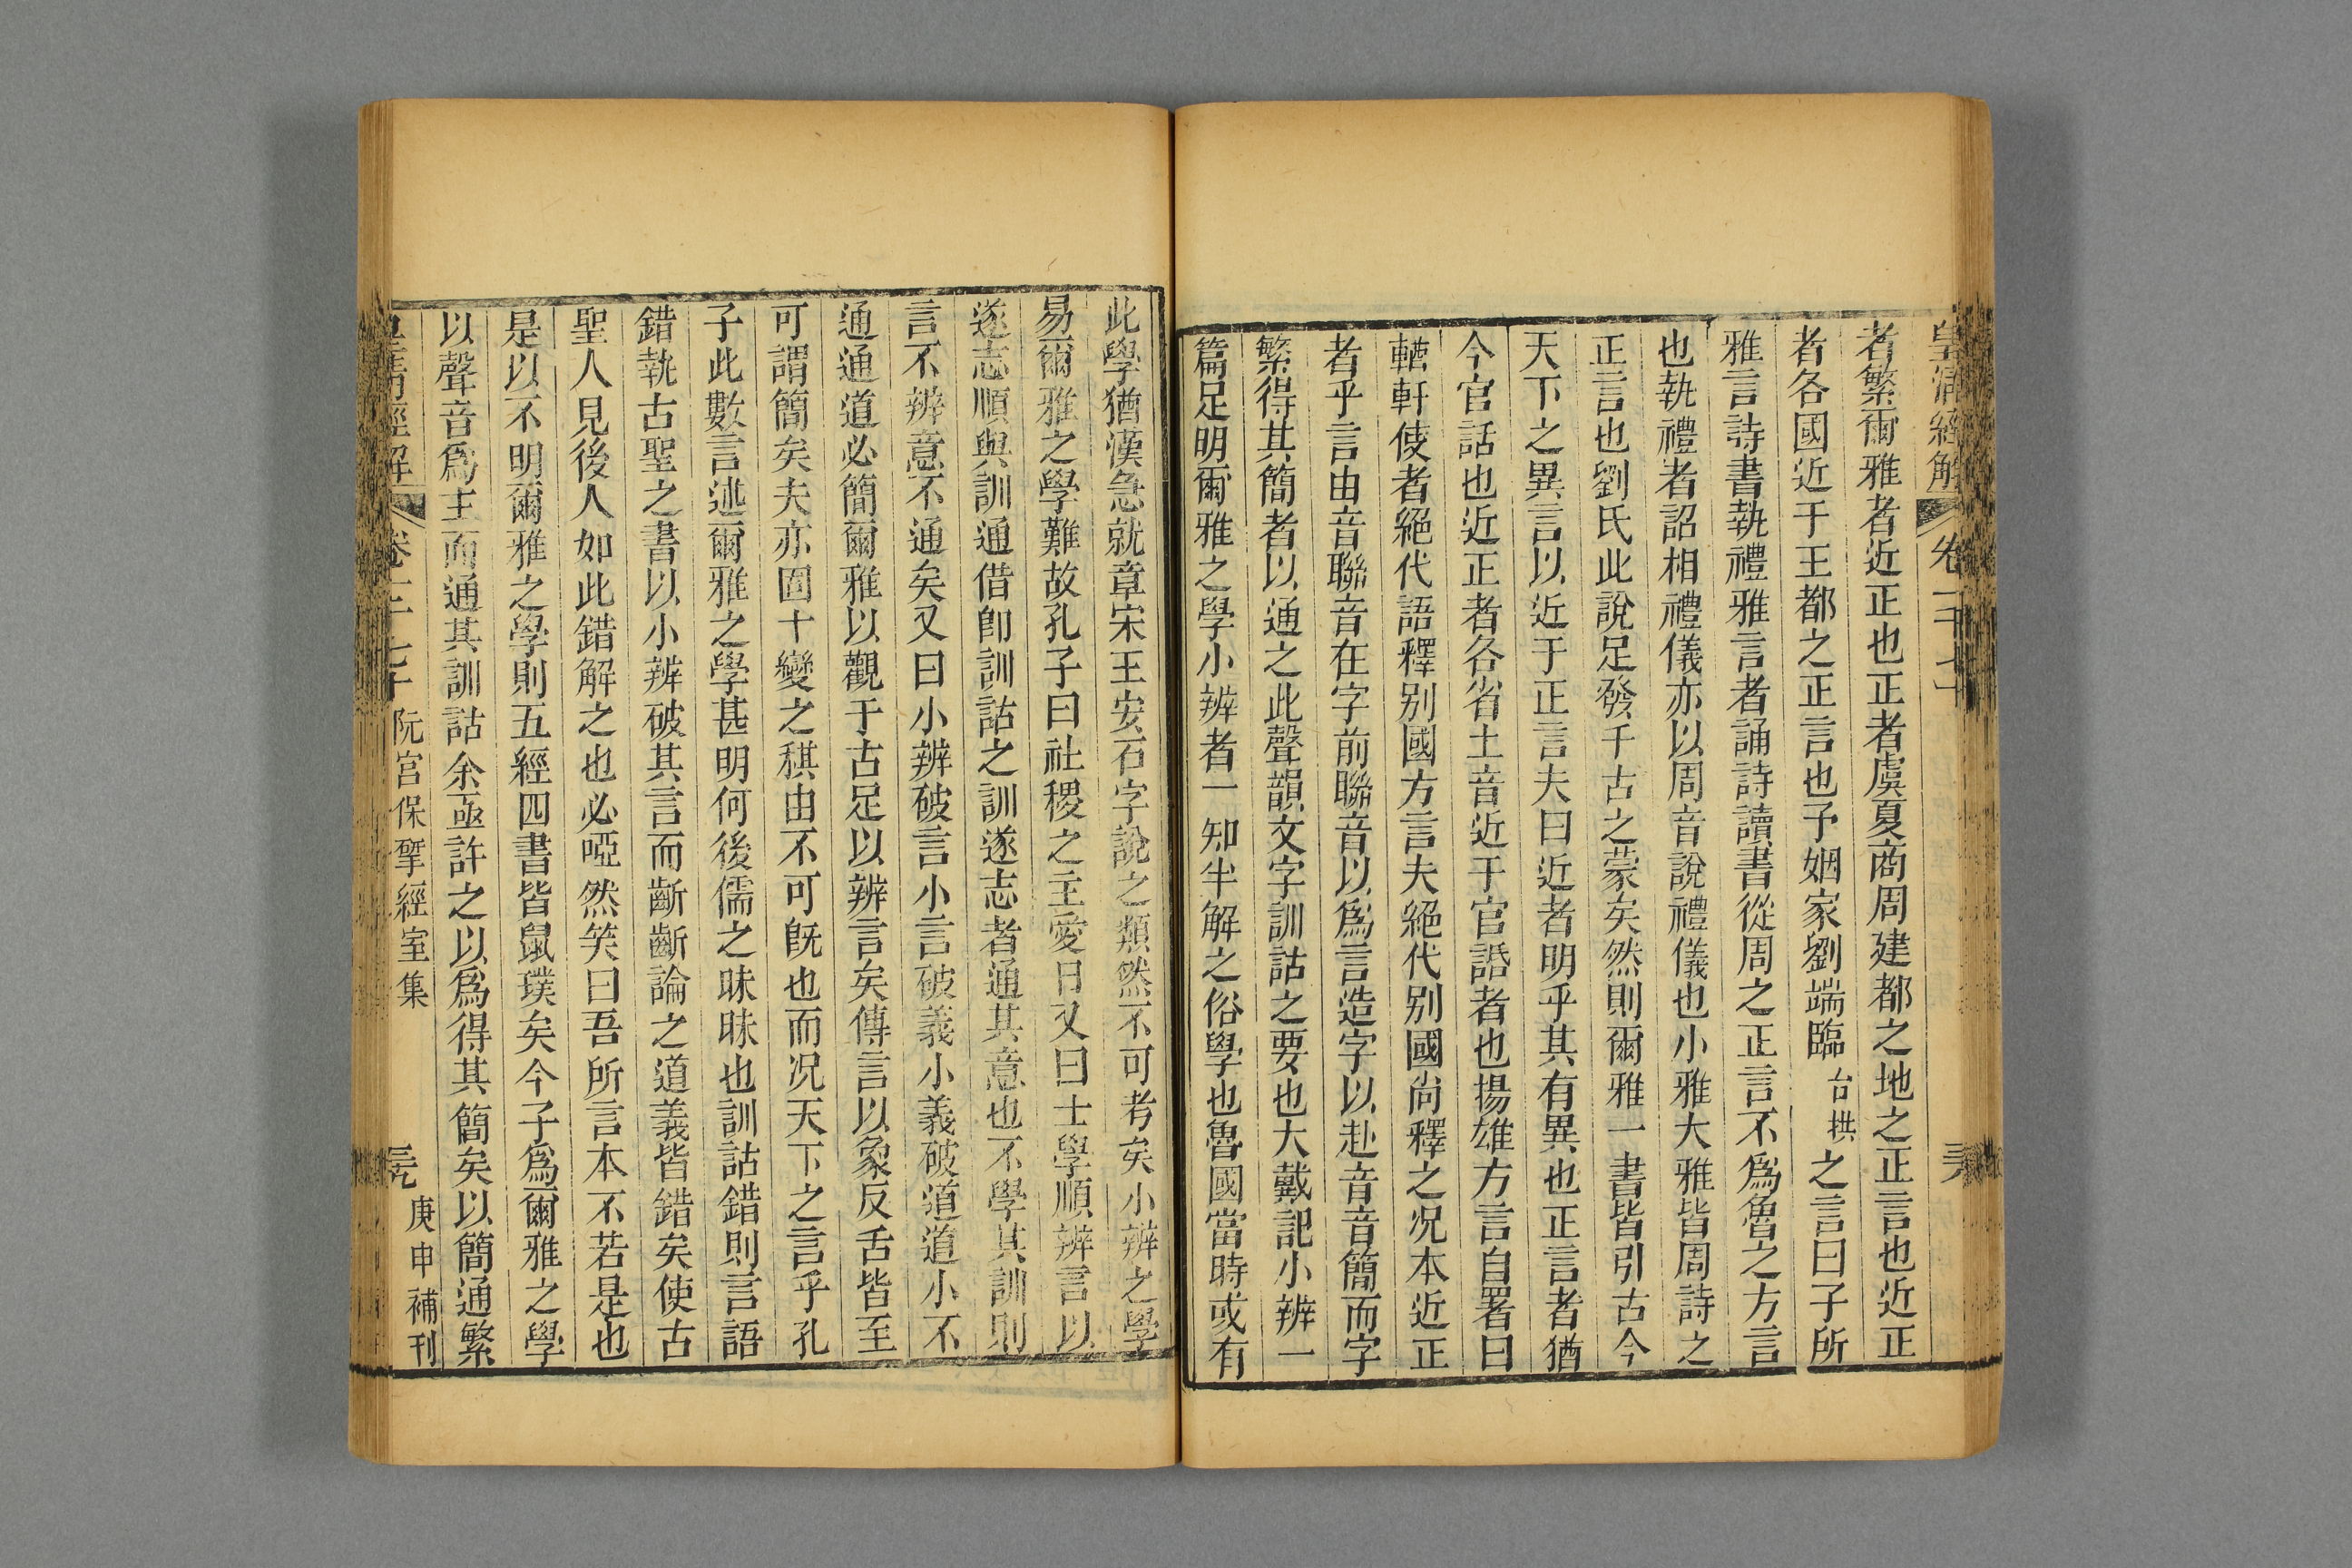 皇清經解 卷一千七十 
者繁爾雅者近正也正者虞夏商周建都之地之正言也近正
者各國近于王都之正言也予姻家劉端臨台拱之言曰子所
雅言詩書執禮雅言者誦詩讀書從周之正言不爲魯之方言
也執禮者詔相禮儀亦以周音說禮儀也小雅大雅皆周詩之
正言也劉氏此說足發千古之蒙矣然則爾雅一書皆引古今
天下之異言以近于正言夫曰近者明乎其有異也正言者猶
今官話也近正者各省土音近于官話者也揚雄方言自署曰
輶軒使者絕代語釋别國方言夫絕代别國尚釋之况本近正
者乎言由音聯音在字前聯音以爲言造字以赴音音簡而字
繁得其簡者以通之此聲韻文字訓詁之要也大戴記小辨一
篇足明爾雅之學小辨者一知半解之俗學也魯國當時或有
此學猶漢急就章宋王安石字說之類然不可考矣小辨之學
易爾雅之學難故孔子曰社稷之主愛日又曰士學順辨言以
遂志順與訓通借卽訓詁之訓遂志者通其意也不學其訓則
言不辨意不通矣又曰小辨破言小言破義小義破道道小不
通通道必簡爾雅以觀于古足以辨言矣傳言以象反舌皆至
可謂簡矣夫亦固十變之稘由不可旣也而况天下之言乎孔
子此數言述爾雅之學甚明何後儒之昧昧也訓詁錯則言語
錯執古聖之書以小辨破其言而齗齗論之道義皆錯矣使古
聖人見後人如此錯解之也必啞然笑曰吾所言本不若是也
是以不明爾雅之學則五經四書皆鼠璞矣今子爲爾雅之學
以聲音爲主而通其訓詁余亟許之以爲得其簡矣以簡通繁
皇清經解 卷一千七十 阮宮保揅經室集 庚申補刊